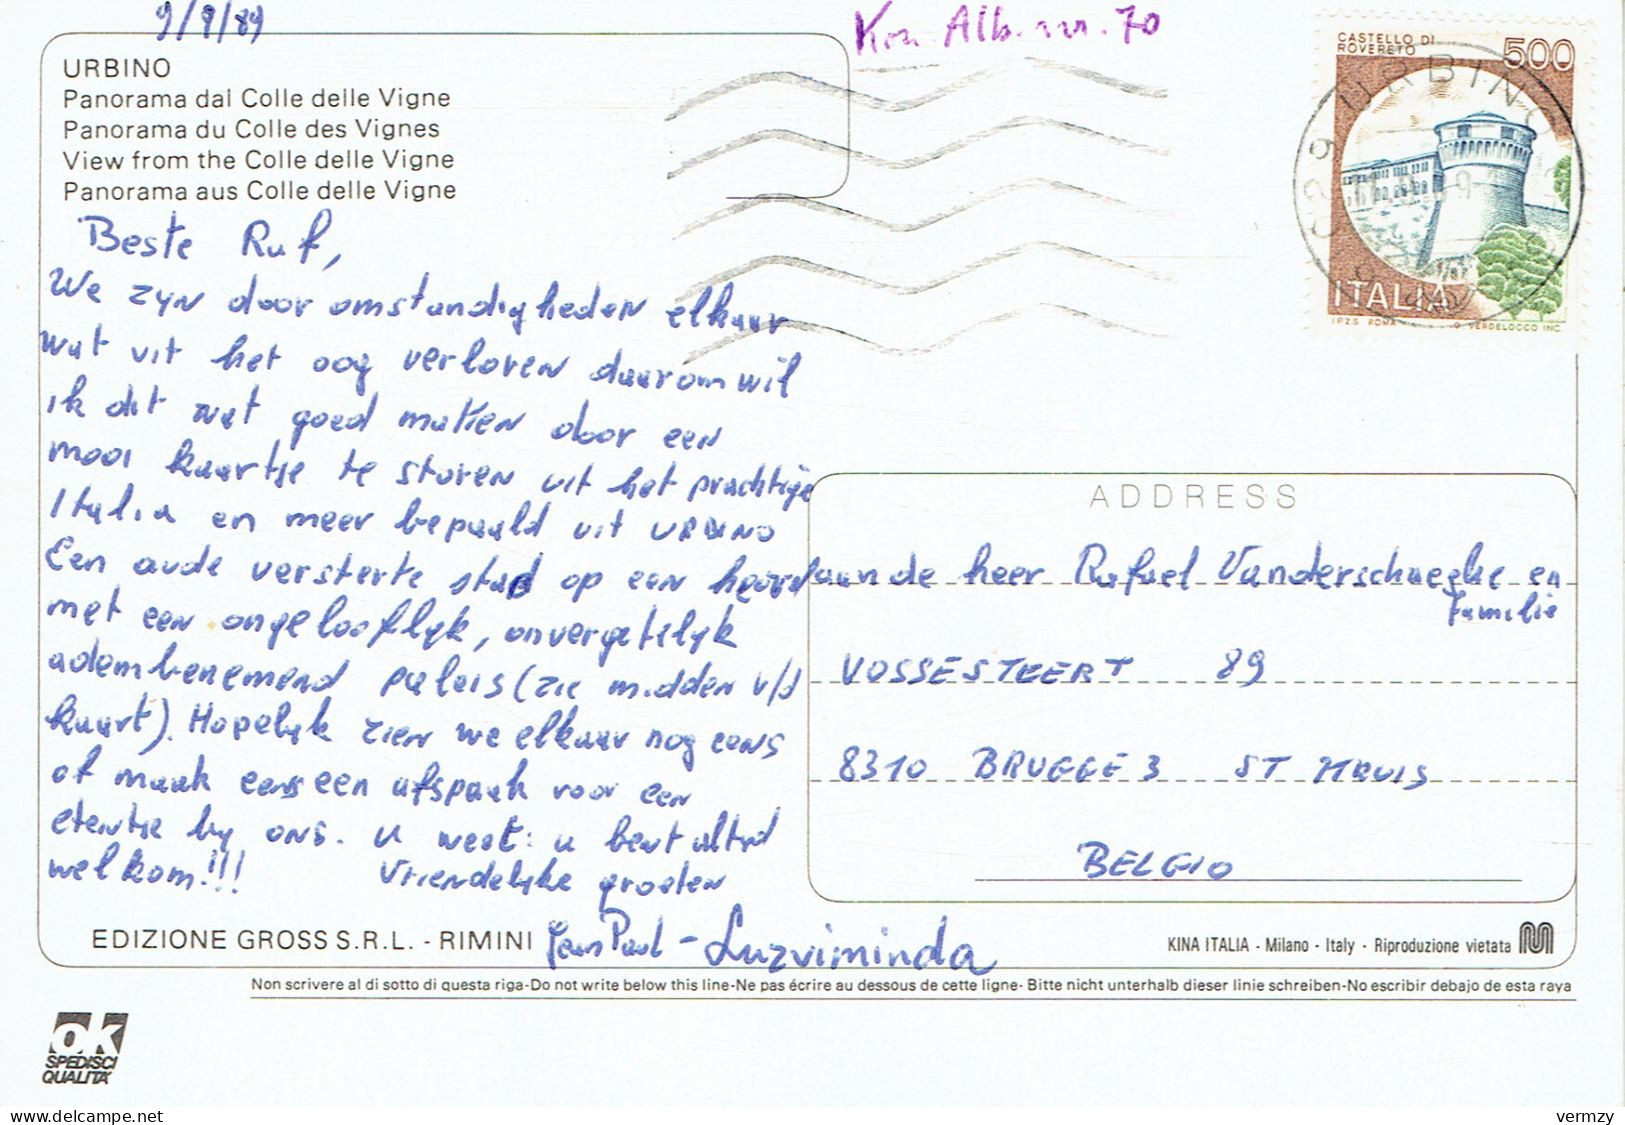 9/9/89
Kon. Alb. nr. 70
URBINO
Panorama dal Colle delle Vigne
Panorama du Colle des Vignes
View from the Colle delle Vigne
Panorama aus Colle delle Vigne
CASTELLO DI
ROVERETO
500
ITALIA
I.P.Z.S. ROMA
VERDELOCCO INC.
Beste Raf,
We zijn door omstandigheden elkaar
wat uit het oog verloren daarom wil
ik dit wat goed maken door een
mooi kaartje te sturen uit het prachtige
Italia en meer bepaald uit URBINO
Een oude versterkte stad op een heuvel
met een ongelooflijk, onvergetelijk
adembenemend paleis (zie midden v/d
kaart). Hopelijk zien we elkaar nog eens
of maak eens een afspraak voor een
etentje bij ons. U weet: u bent altijd
welkom!!!
Vriendelijke groeten
Jean Paul - Luzviminda
ADDRESS
aan de heer Rafael Vanderschaeghe en
Familie
VOSSESTEERT 89
8310 BRUGGE 3 ST KRUIS
BELGIO
EDIZIONE GROSS S.R.L. - RIMINI
KINA ITALIA - Milano - Italy - Riproduzione vietata
Non scrivere al di sotto di questa riga-Do not write below this line-Ne pas écrire au dessous de cette ligne- Bitte nicht unterhalb dieser linie schreiben-No escribir debajo de esta raya
OK
SPEDISCI
QUALITA'
delcampe.net
vermzy